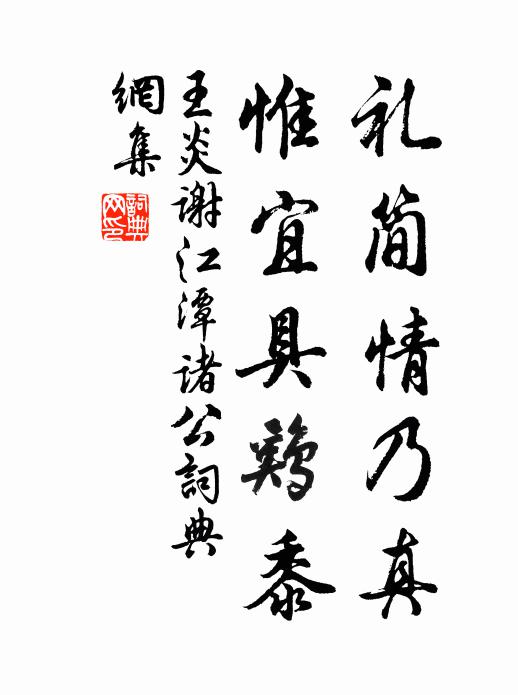 礼简情乃真
惟宜具鷄黍
王炎谢江潭诸公詞典
網集
詞典网印